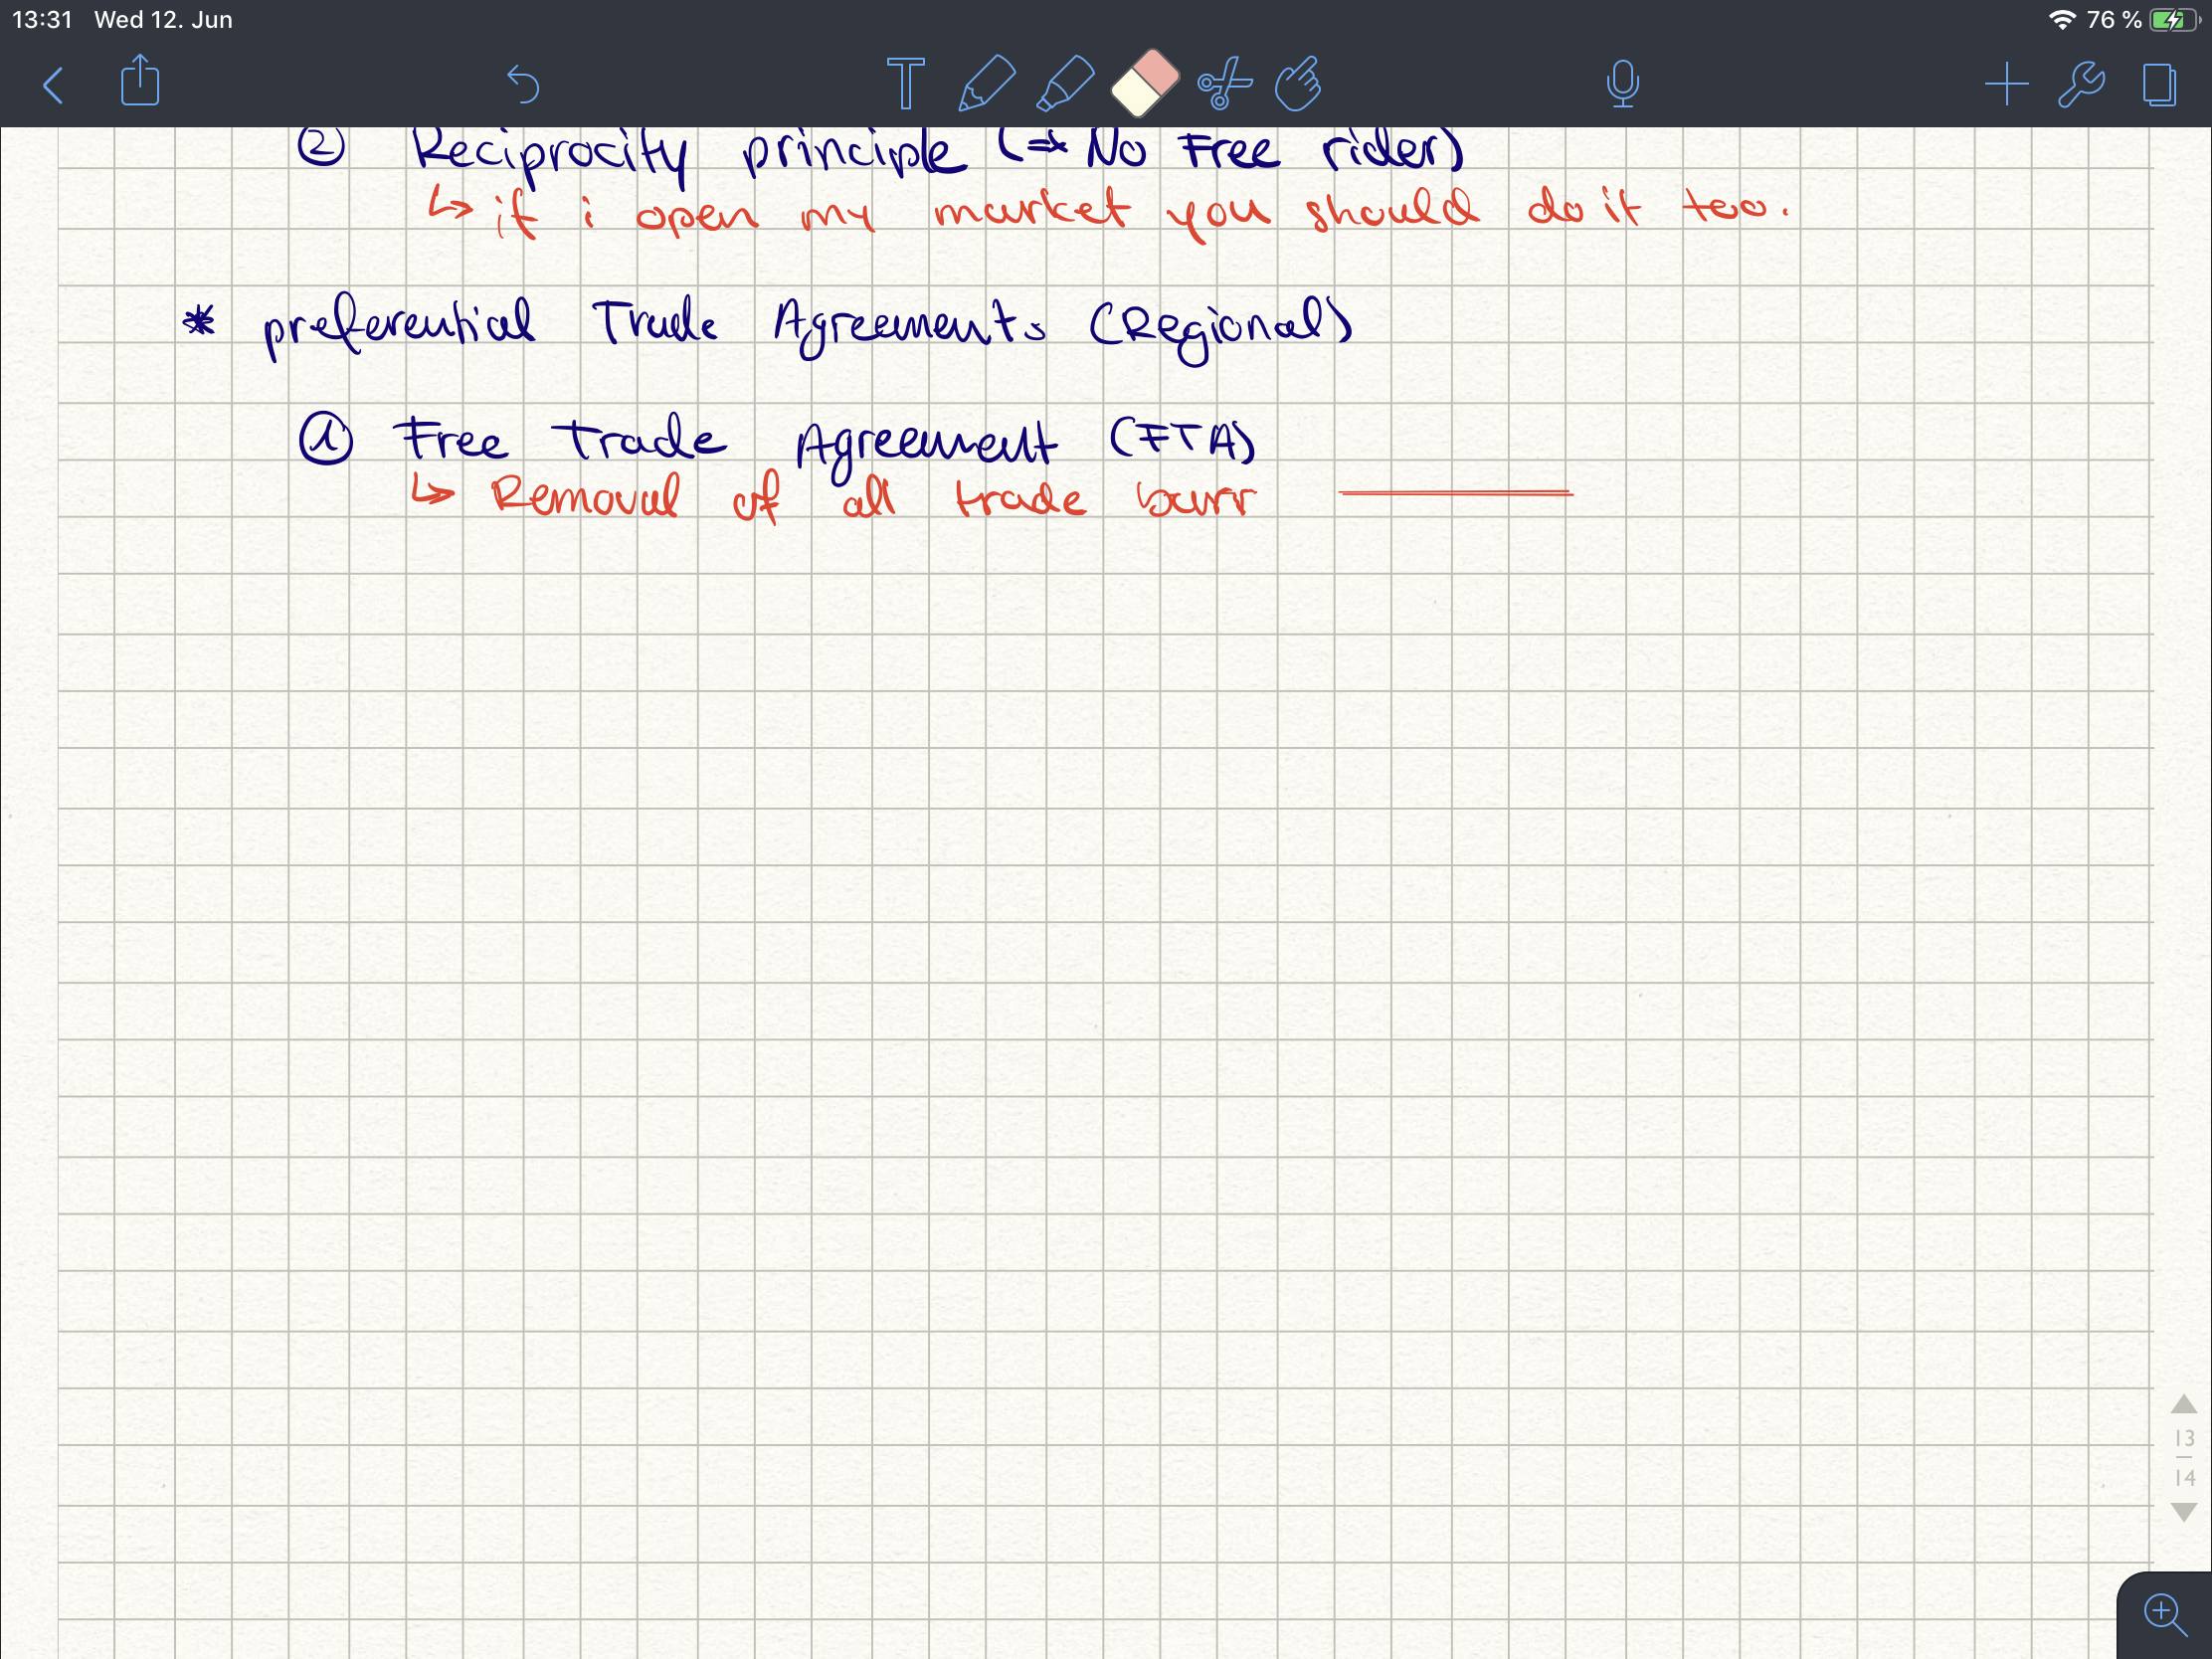 13:31 Wed 12. Jun 76 %
② Reciprocity principle (⇒ No Free rider)
↳ if i open my market you should do it too.
* preferential Trade Agreements (Regional)
① Free Trade Agreement (FTA)
↳ Removal of all trade barr
13
14